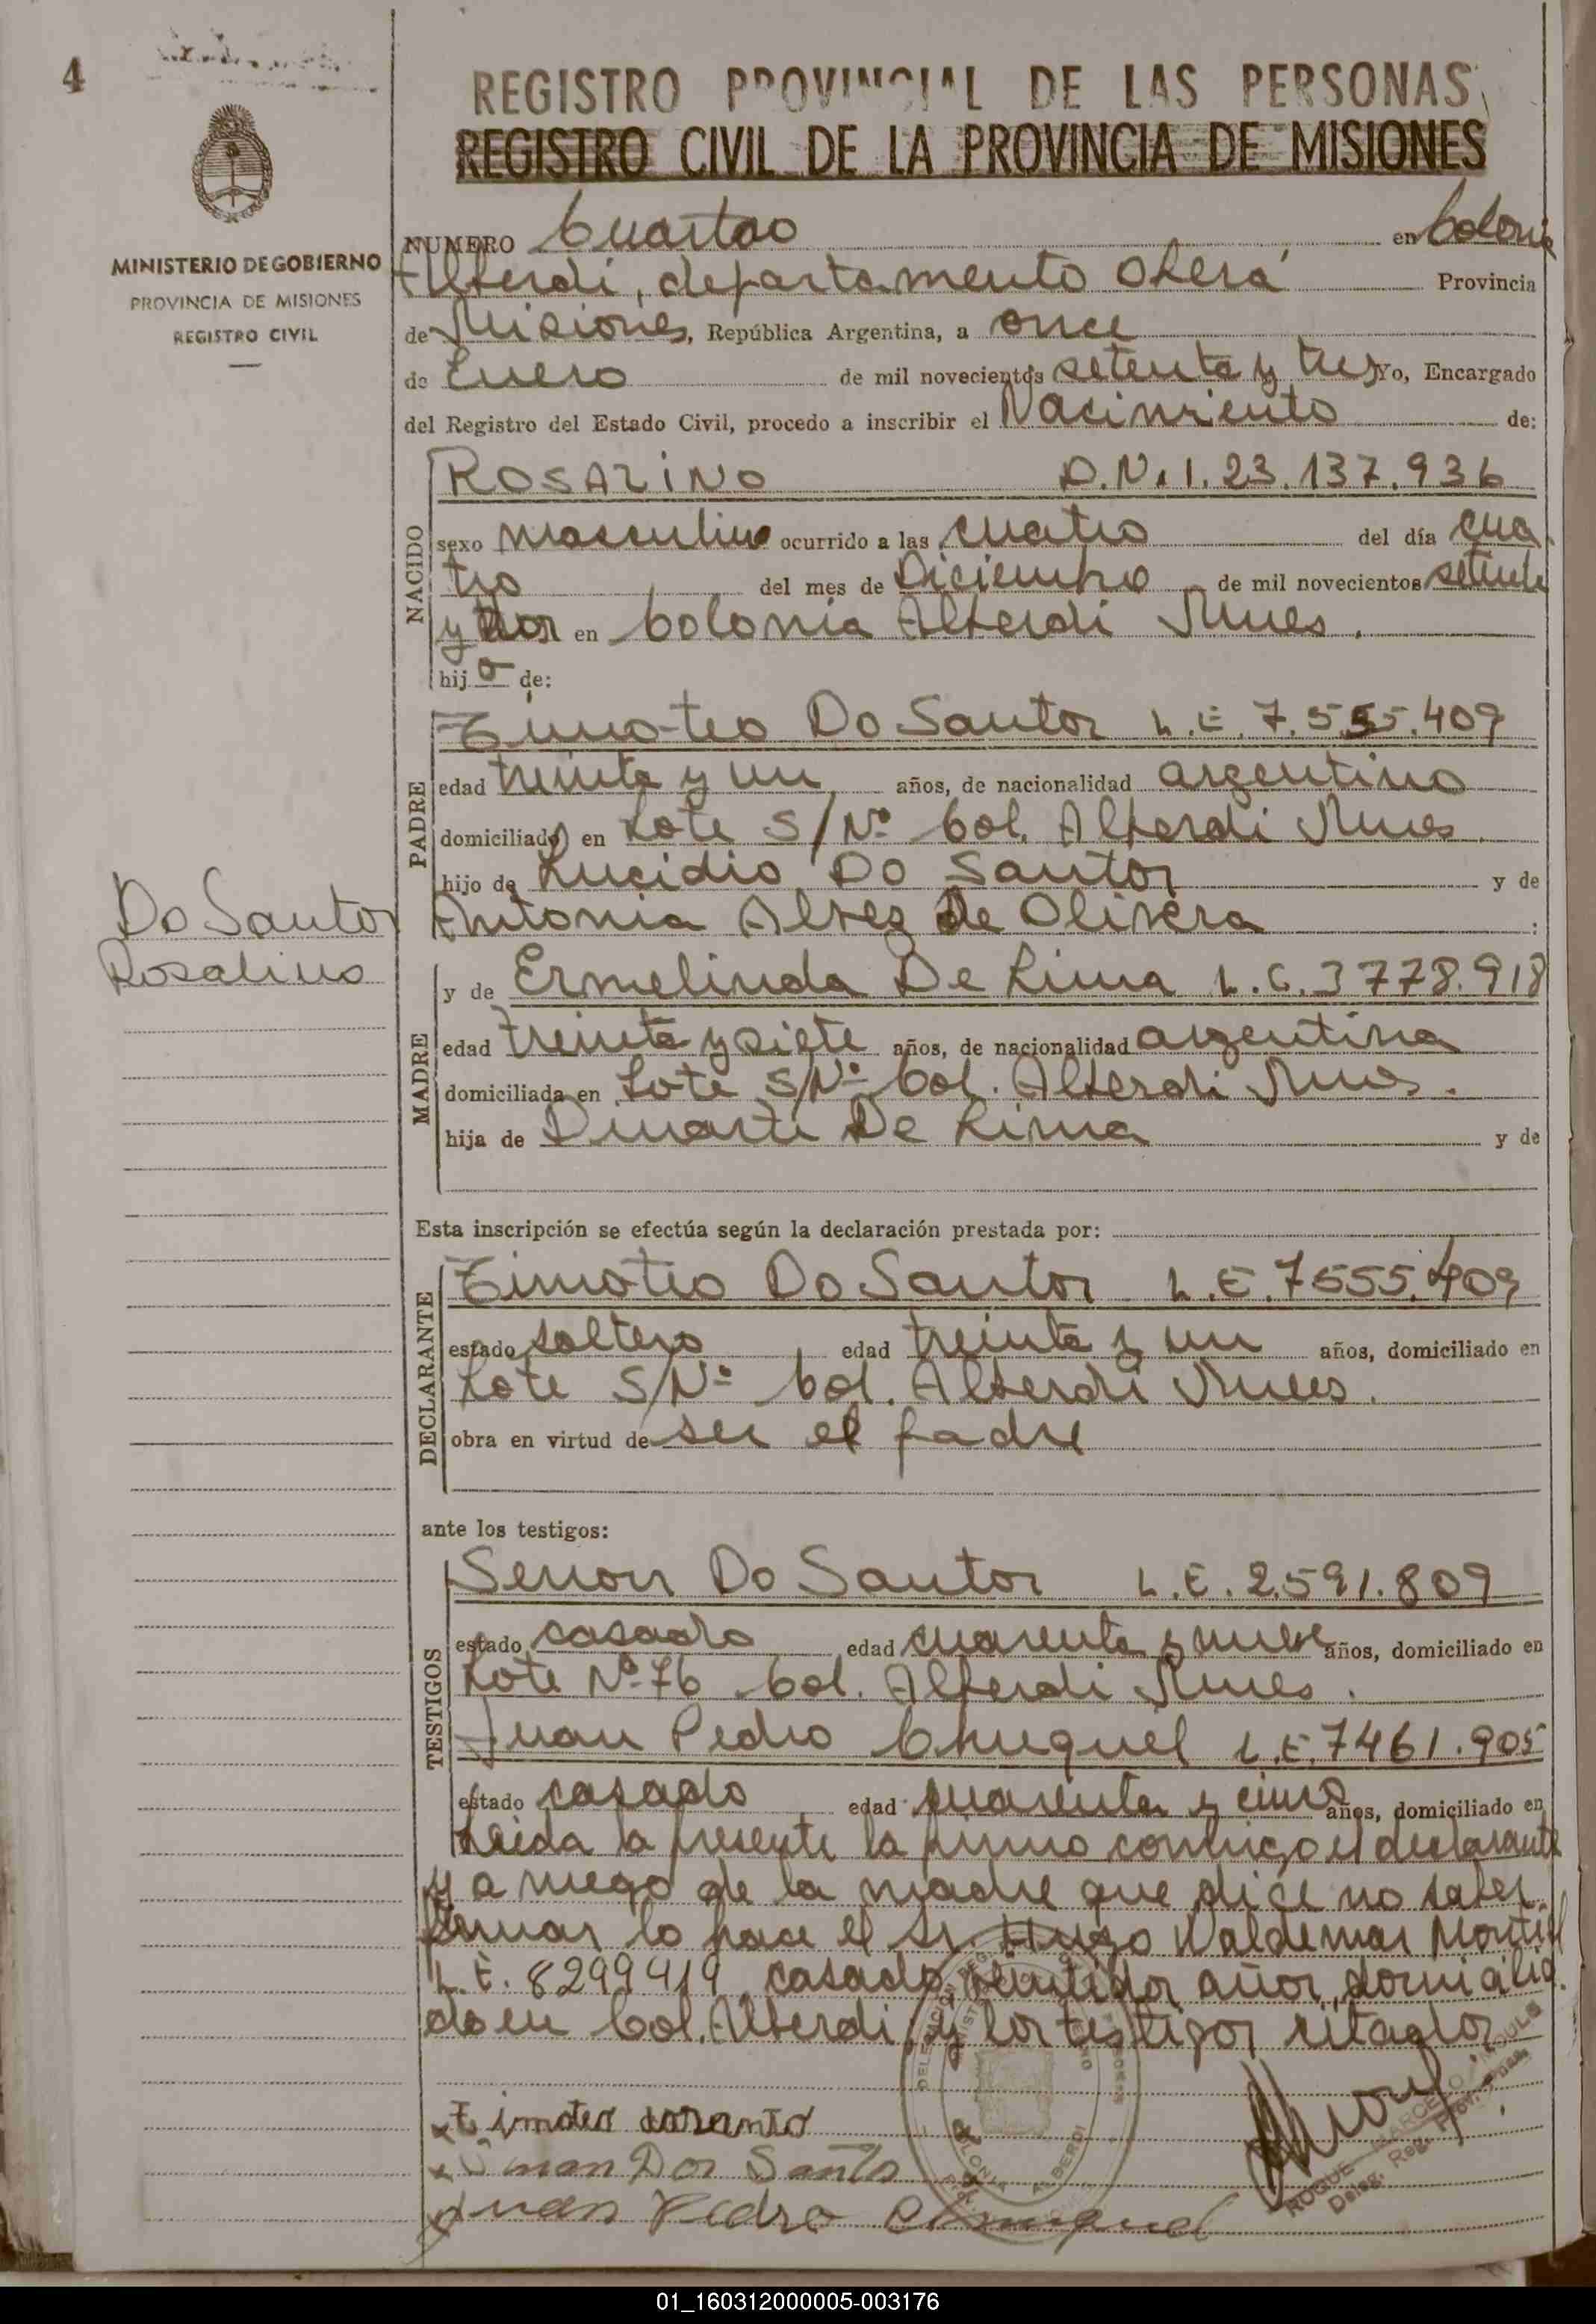 4
REGISTRO PROVINCIAL DE LAS PERSONAS
REGISTRO CIVIL DE LA PROVINCIA DE MISIONES
MINISTERIO DE GOBIERNO
PROVINCIA DE MISIONES
REGISTRO CIVIL
NUMERO Cuartao en Colonia
Alberdi, departamento Oberá Provincia
de Misiones, República Argentina, a once
de Enero de mil novecientos setenta y tres Yo, Encargado
del Registro del Estado Civil, procedo a inscribir el Nacimiento de:
NACIDO
ROSALINO D.N.I. 23.137.936
sexo masculino ocurrido a las cuatro del día cua
tro del mes de Diciembre de mil novecientos setenta
y dos en Colonia Alberdi Mnes.
hijo de:
PADRE
Timoteo Do Santos L.E. 7.555.409
edad treinta y un años, de nacionalidad argentino
domiciliado en Lote S/Nº Col. Alberdi Mnes.
hijo de Lucidio Do Santos y de
Antonia Alves De Olivera :
Do Santos
Rosalino
MADRE
y de Ermelinda De Lima L.C. 3778.918
edad treinta y siete años, de nacionalidad argentina
domiciliada en Lote S/Nº Col. Alberdi Mnes.
hija de Duarte De Lima y de
Esta inscripción se efectúa según la declaración prestada por:
DECLARANTE
Timoteo Do Santos L.E. 7555.409
estado soltero edad treinta y un años, domiciliado en
Lote S/Nº Col. Alberdi Mnes.
obra en virtud de ser el padre
ante los testigos:
TESTIGOS
Do Santos L.E. 2.591.809
estado casado edad cuarenta y nueve años, domiciliado en
Lote Nº 76 Col. Alberdi Mnes.
Juan Pedro Chuquel L.E. 7461.905
estado casado edad cuarenta y cinco años, domiciliado en
Leida la presente la firma conmigo el declarante
y a ruego de la madre que dice no saber
firmar lo hace el Sr. Hugo Waldemar Montiel
L.E. 8299419 casado, veintidos años, domicilia
do en Col. Alberdi, y los testigos citados
x timoteo
x Dos Santo
Juan Pedro Chuquel
COLONIA ALBERDI
ROQUE MARCELO
Deleg. Reg. Prov. Personas
01_160312000005-003176